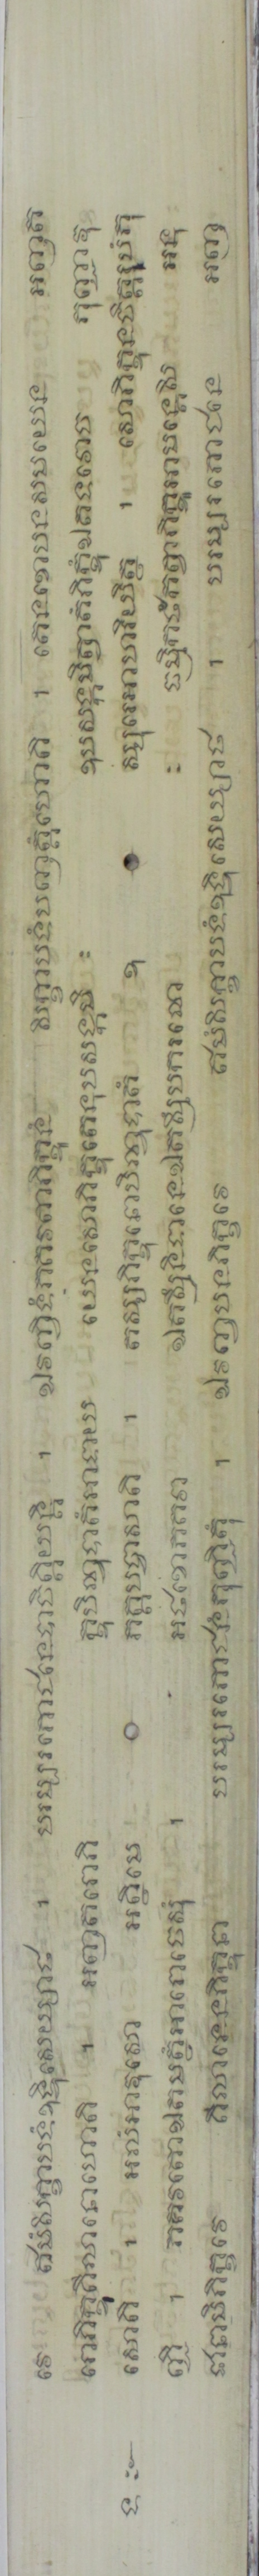 វេ ឥមំសិក្ខាបទំឧទ្ទិសេយ្យាថ ។ បរម្បរភោជនេបាចិត្តិយន្តិ ។ ឯវញ្ចិទំភគវតាភិក្ខូនំ សិក្ខាបទំបញត្តំហោតិ ។ តេនខោបនសមយេន អញត
រោភិក្ខុគិលានោហោតិ ។ អញតរោភិ ក្ខុបិណ្ឌបាតំអាទាយ យេនសោភិក្ខុតេនុបសង្កមិ ៖ ឧបសង្កមិត្វាតំភិក្ខុំឯតទវោច ភុញ្ជាវុ
ទ ៖ សោតិ ។ អលំអាវុសោ អត្ថិមេ ភត្តបច្ចាសាតិ ។ តស្សភិក្ខុនោបិណ្ឌបាតោ ឧ ស្សុរេអាហរិយិត្ថ ។ សោភិក្ខុនចិត្តរូបំភុ
ញ្ជិ ។ ភគវតោឯតមត្ថំអារោចេសុំ ។ អថខោភគវា ឯតស្មិំនិទានេឯតស្មិំបករណេ ៖ ធម្មិកថំកត្វាភិក្ខូអាមន្តេសិ អនុ
ជានាមិភិក្ខវេ គិលានេនភិក្ខុនា បរម្បរភោជនំភុញ្ជិតុំ ។ ឯវញ្ចបនភិក្ខវេ ឥមំសិក្ខាបទំឧទ្ទិសេយ្យាថ ។ បរម្បរភោជនេ អញ